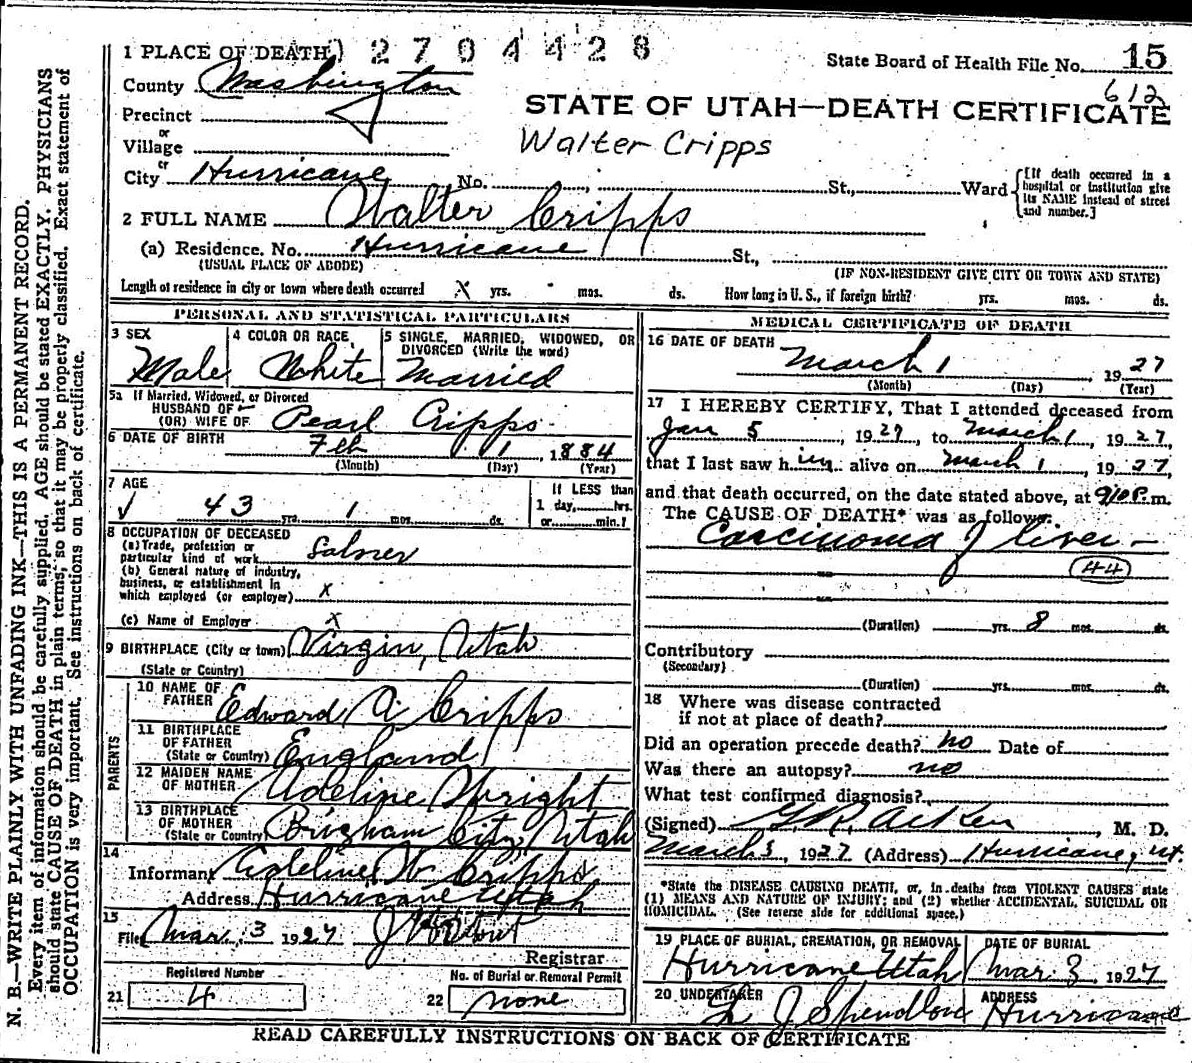 1 PLACE OF DEATH 2 7 0 4 4 2 8
State Board of Health File No. 15
612
County Washington
STATE OF UTAH—DEATH CERTIFICATE
Precinct
or
Village
Walter Cripps
or
City Hurricane No. St., Ward
[If death occurred in a
hospital or institution give
its NAME instead of street
and number.]
2 FULL NAME Walter Cripps
(a) Residence. No. Hurricane St.,
(USUAL PLACE OF ABODE) (IF NON-RESIDENT GIVE CITY OR TOWN AND STATE)
Length of residence in city or town where death occurred X yrs. mos. ds. How long in U. S., if foreign birth? yrs. mos. ds.
PERSONAL AND STATISTICAL PARTICULARS
3 SEX
Male
4 COLOR OR RACE
White
5 SINGLE, MARRIED, WIDOWED, OR
DIVORCED (Write the word)
Married
5a If Married, Widowed, or Divorced
HUSBAND OF
(OR) WIFE OF Pearl Cripps
6 DATE OF BIRTH Feb 1, 1884
(Month) (Day) (Year)
7 AGE
43 yrs. 1 mos. ds.
If LESS than
1 day, hrs.
or min.?
8 OCCUPATION OF DECEASED
(a) Trade, profession or
particular kind of work
(b) General nature of industry,
business, or establishment in
which employed (or employer) X
(c) Name of Employer X
9 BIRTHPLACE (City or town) Virgin, Utah
(State or Country)
PARENTS
10 NAME OF
FATHER Edward A Cripps
11 BIRTHPLACE
OF FATHER
(State or Country) England
12 MAIDEN NAME
OF MOTHER Adeline Wright
13 BIRTHPLACE
OF MOTHER
(State or Country) Brigham City, Utah
14
Informant Adeline W Cripps
Address Hurricane Utah
15
File Mar. 3 1927
Registrar
Registered Number
21 4
No. of Burial or Removal Permit
22 none
MEDICAL CERTIFICATE OF DEATH
16 DATE OF DEATH
March 1, 1927
(Month) (Day) (Year)
17 I HEREBY CERTIFY, That I attended deceased from
Jan 5, 1927, to March 1, 1927,
that I last saw him alive on March 1, 1927,
and that death occurred, on the date stated above, at 910 P.m.
The CAUSE OF DEATH* was as follows:
Carcinoma of liver —
44
(Duration) yrs. 8 mos. ds.
Contributory
(Secondary)
(Duration) yrs. mos. ds.
18 Where was disease contracted
if not at place of death?
Did an operation precede death? no Date of
Was there an autopsy? no
What test confirmed diagnosis?
(Signed) G.R. Aiken, M. D.
March 3, 1927 (Address) Hurricane, Ut.
*State the DISEASE CAUSING DEATH, or, in deaths from VIOLENT CAUSES state
(1) MEANS AND NATURE OF INJURY; and (2) whether ACCIDENTAL, SUICIDAL OR
HOMICIDAL. (See reverse side for additional space.)
19 PLACE OF BURIAL, CREMATION, OR REMOVAL
Hurricane Utah
DATE OF BURIAL
Mar. 3, 1927
20 UNDERTAKER
L J Spendlove
ADDRESS
Hurricane
READ CAREFULLY INSTRUCTIONS ON BACK OF CERTIFICATE
N. B.—WRITE PLAINLY WITH UNFADING INK—THIS IS A PERMANENT RECORD.
Every item of information should be carefully supplied. AGE should be stated EXACTLY. PHYSICIANS
should state CAUSE OF DEATH in plain terms, so that it may be properly classified. Exact statement of
OCCUPATION is very important. See instructions on back of certificate.